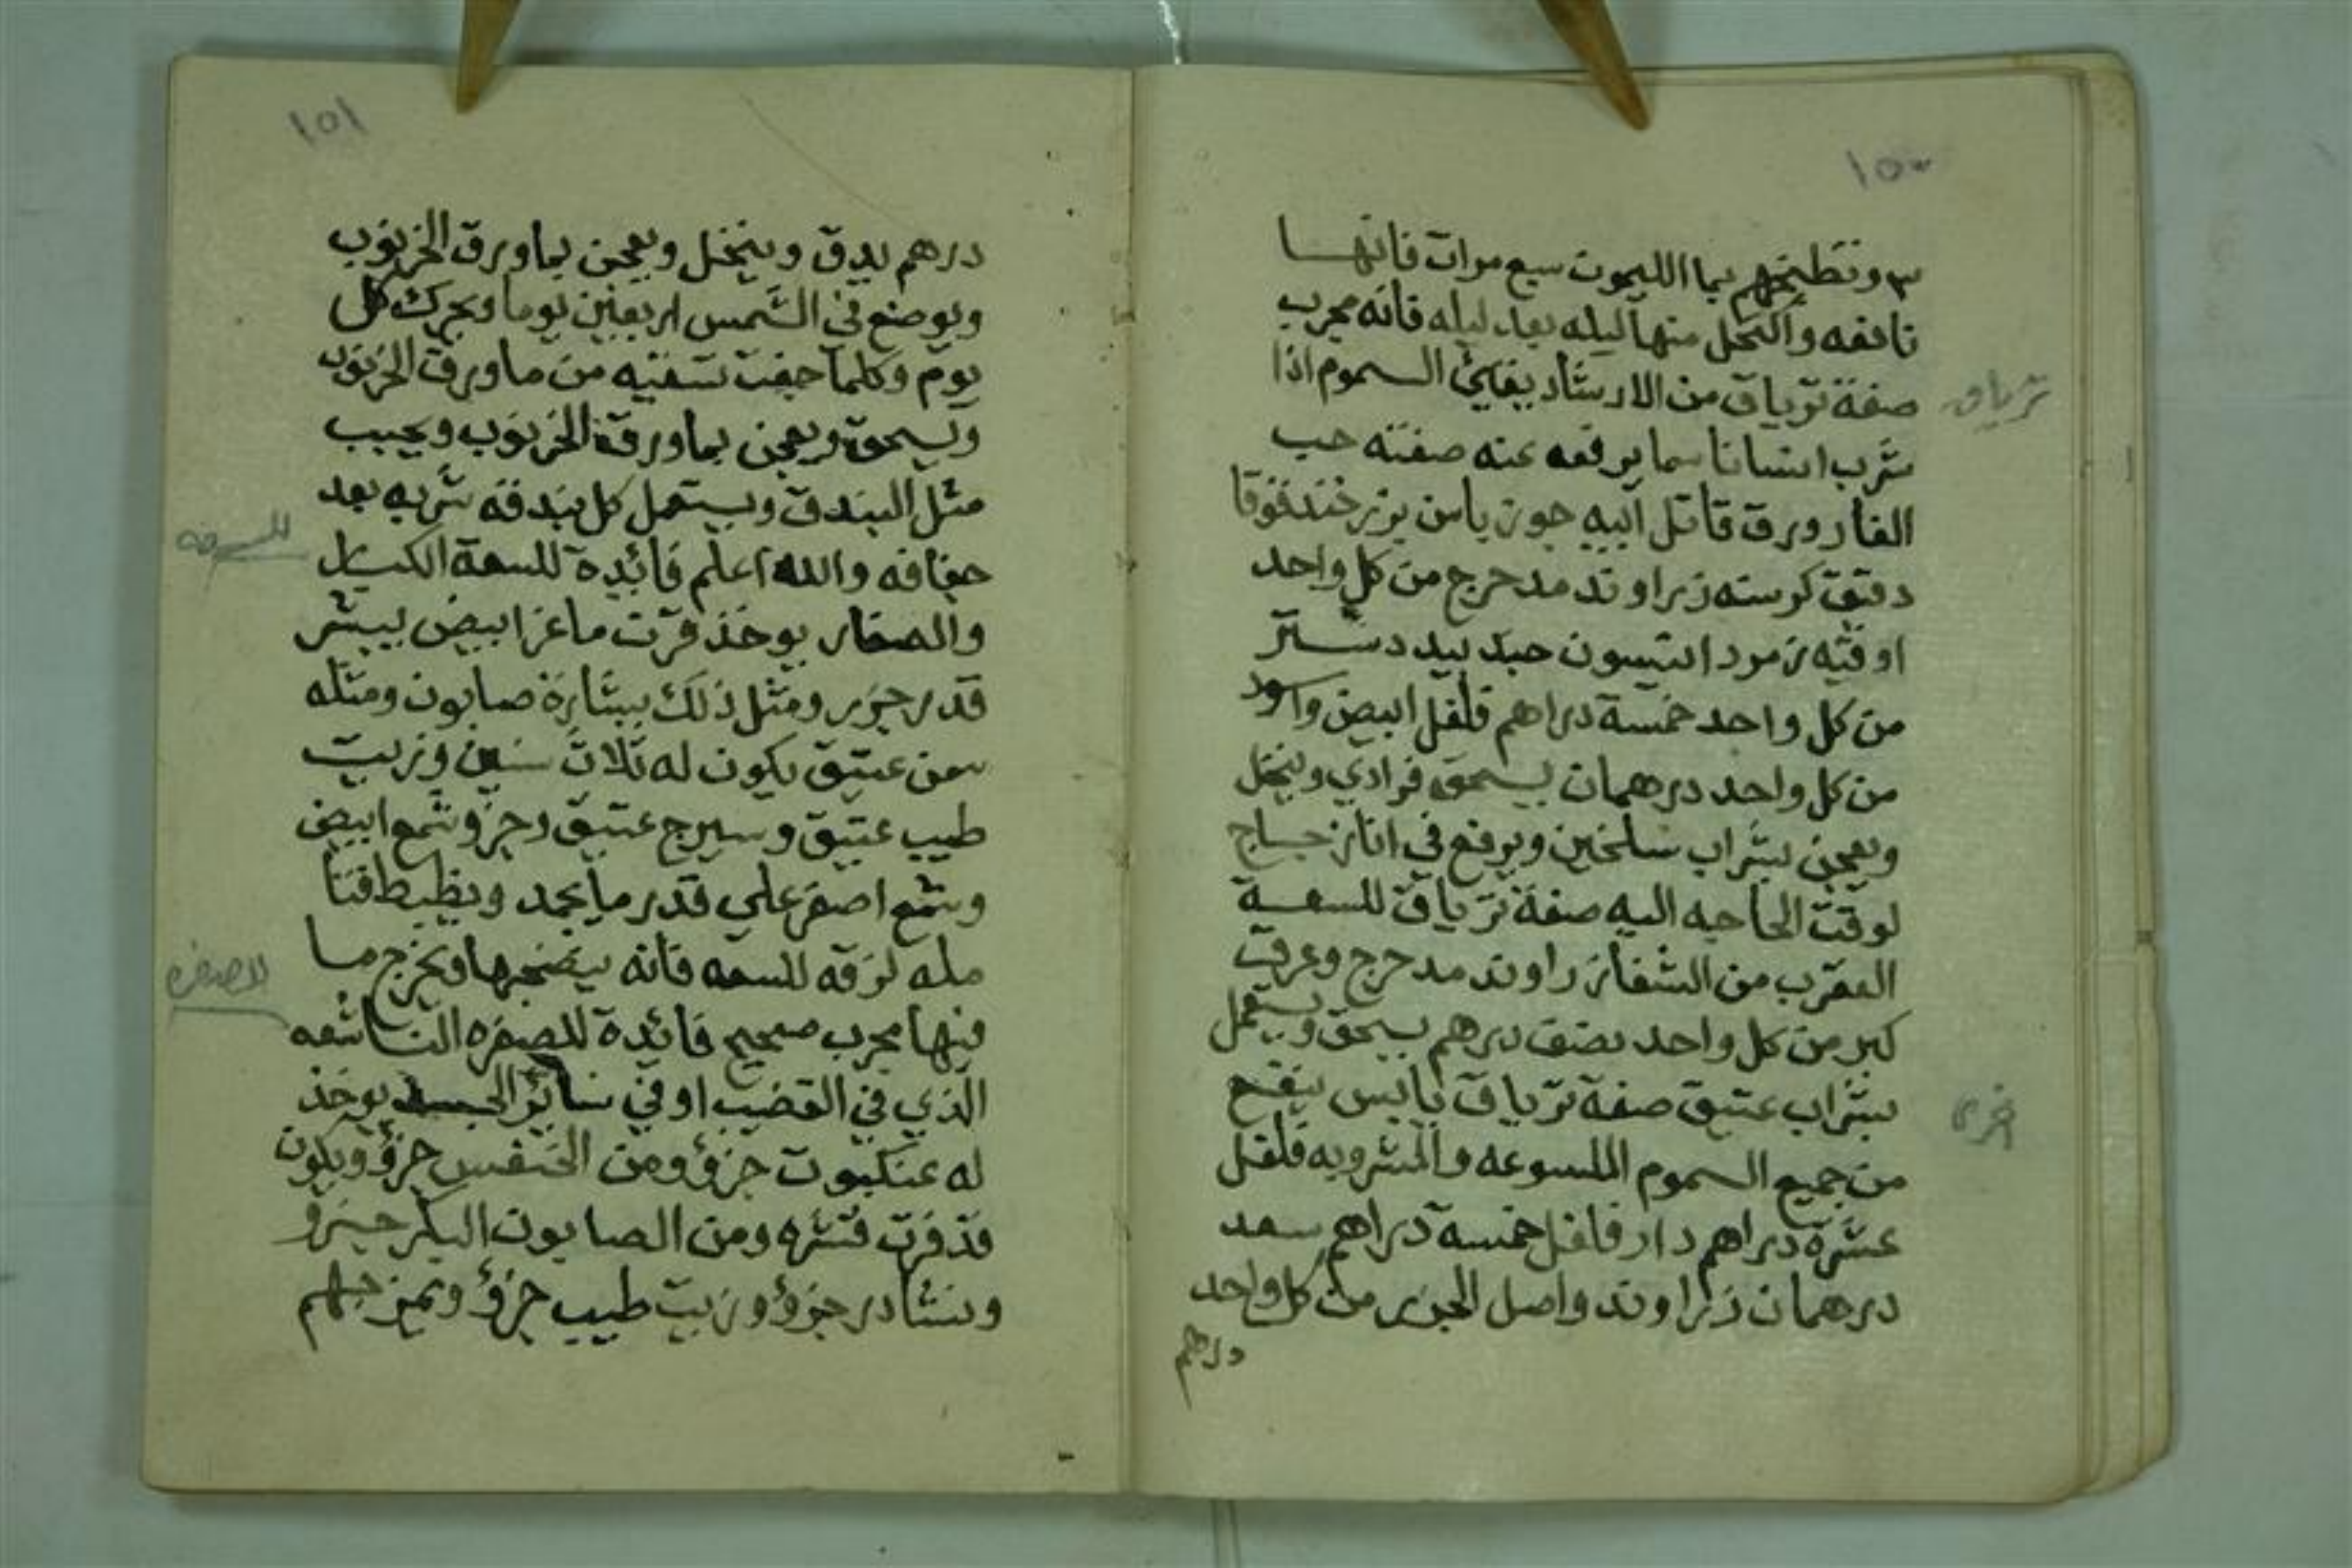 ١٥٠
٣ وتطبخهم بما الليمون سبع مرات فانها
نافعه واكتحل منها ليله بعد ليله فانه مجرب
ترياق
صفة ترياق من الارشاد يفايئ السموم اذا
شرب انسانا سما يرفعه عنه صفته حب
الغار ورق قاتل ابيه جوز يابس بزر خندقوقا
دقيق كرسنه زراوند مدحرج من كل واحد
اوقيه زمرد انيسون جيد بيد دستر
من كل واحد خمسة دراهم فلفل ابيض واسود
من كل واحد درهمان يسحق فرادي وينخل
ويعجن بشراب سلخين ويرفع في انا زجاج
لوقت الحاجه اليه صفة ترياق للسعة
العقرب من الشفا زراوند مدحرج وعرق
كبر من كل واحد نصف درهم يسحق ويستعمل
اخرى
بشراب عتيق صفة ترياق يابس ينفع
من جميع السموم الملسوعه والمشروبه فلفل
عشرة دراهم دار فلفل خمسة دراهم سعد
درهمان زراوند واصل الجزر من كل واحد
درهم
١٥١
درهم يدق وينخل ويعجن بماورق الخرنوب
ويوضع في الشمس اربعين يوما ويحرك كل
يوم وكلما جفت تسقيه من ماورق الخرنوب
ويسحق ويعجن بماورقة الخرنوب ويحبب
مثل البندق ويستعمل كل بندقه شربه بعد
للسعفه
جفافه والله اعلم فائدة للسعة الكبار
والصغار يوخذ قرن ماعز ابيض يبشر
قدر جزء ومثل ذلك بشارة صابون ومثله
سمن عتيق يكون له ثلاث سنين وزيت
طيب عتيق وسيرج عتيق وجزو شمع ابيض
وشمع اصفر علي قدر ما يجمد
مله لزقه للسعه فانه ينضجها ويخرج ما
للصفره
فيها مجرب صحيح فائدة للصفره الناشفه
الذي في القضيب او في ساير الجسد يوخذ
له عنكبوت جزؤ ومن الخنفس جزؤ ويكون
قد فرت قشره ومن الصابون البكر جزؤ
ونشادر جزؤ وزيت طيب جزؤ ويمزجهم